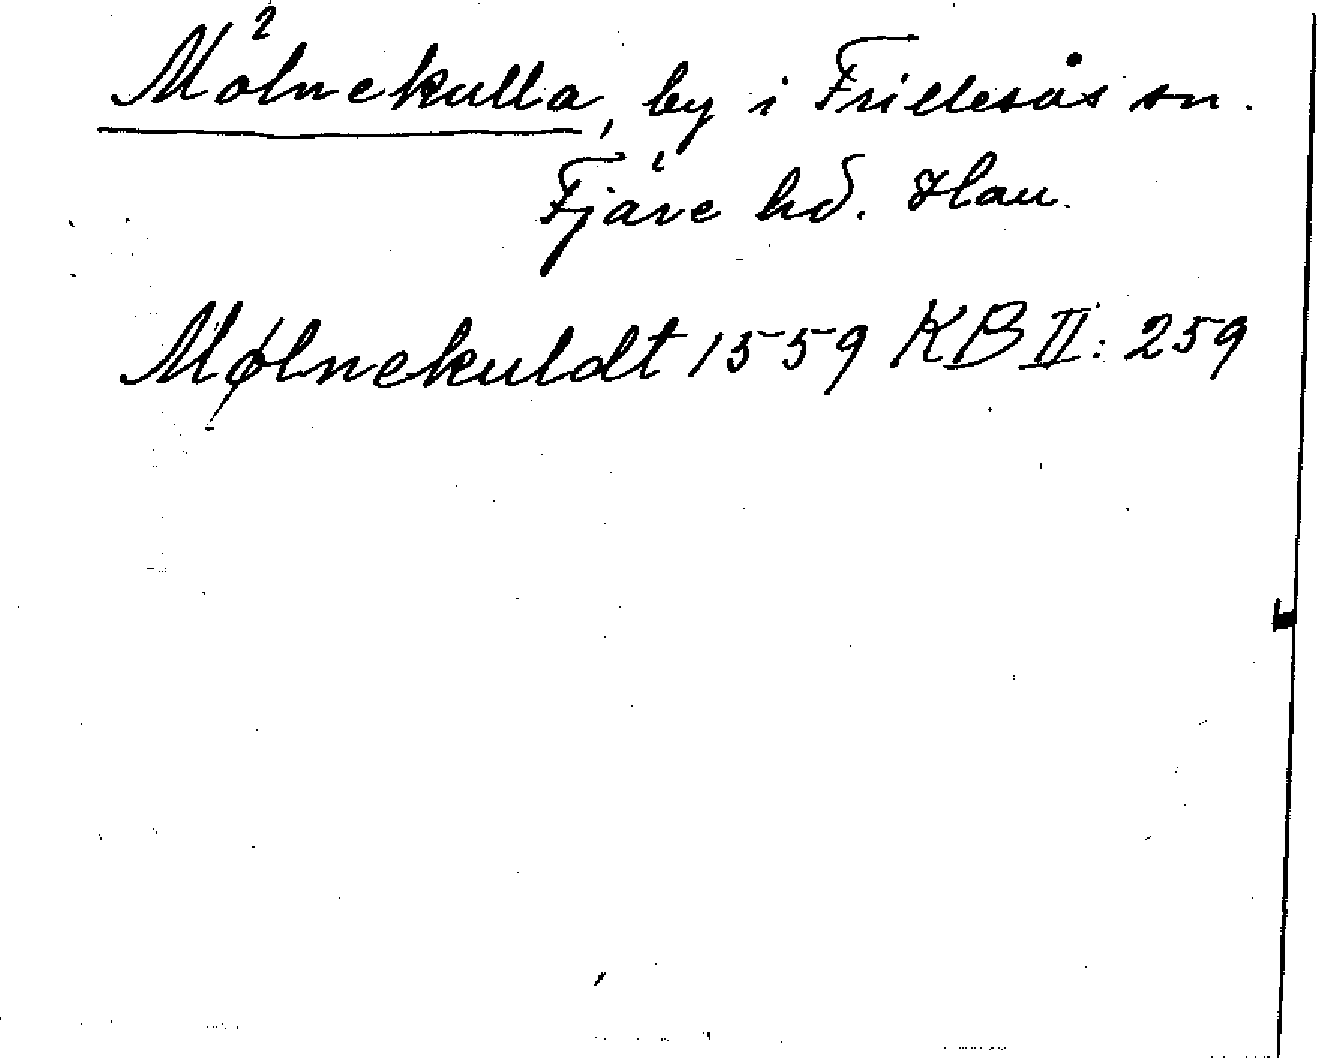 Mölnekulla, by i Frillesås sn.
Fjäre hd. Hall.
Mølnekuldt 1559 KB II: 259